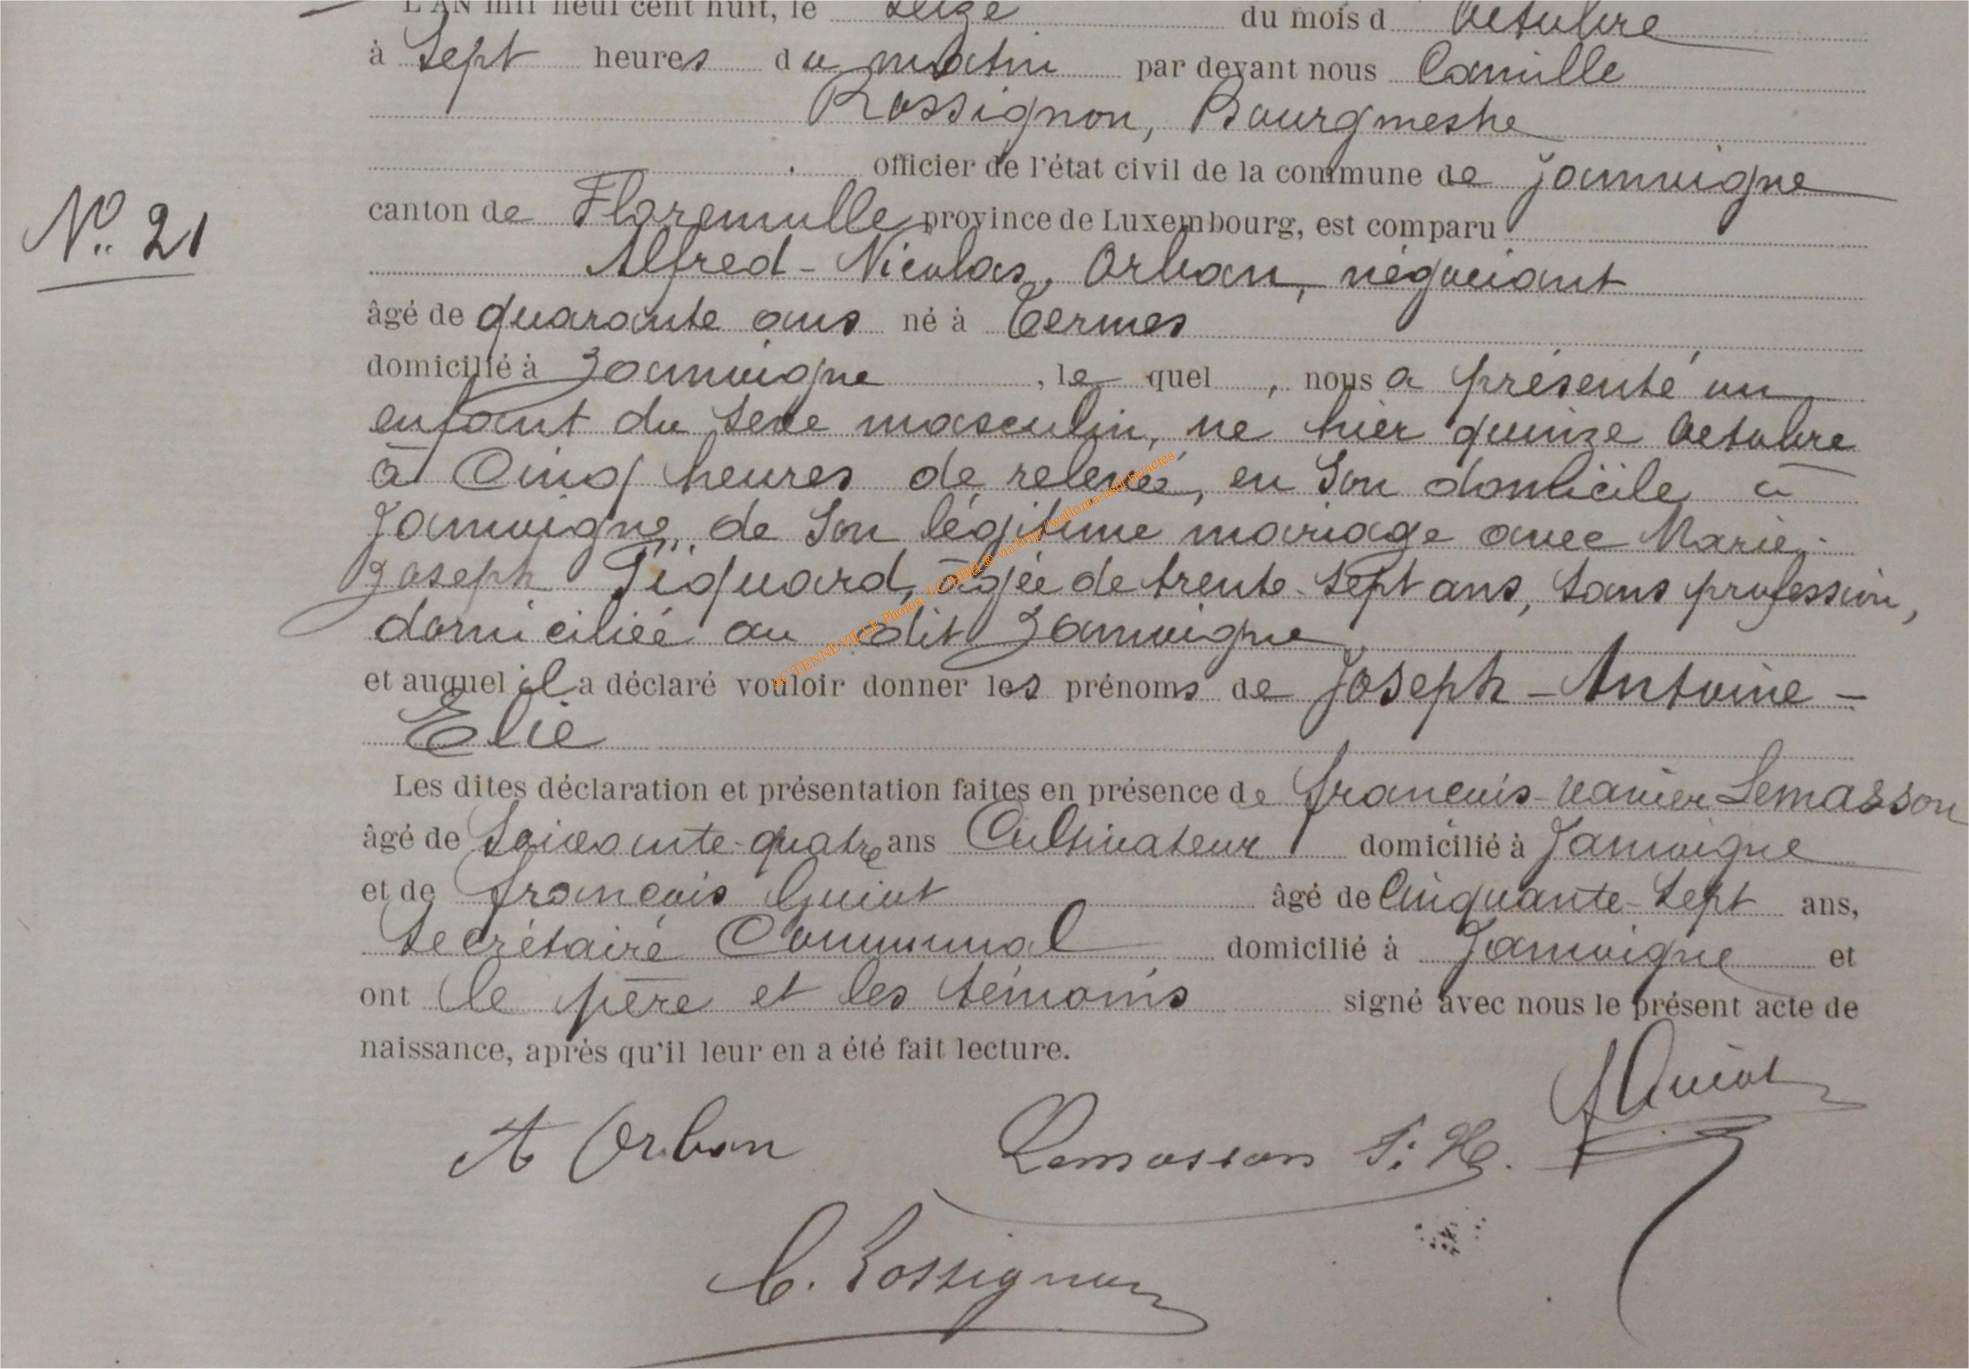 L'AN mil neuf cent huit, le seize du mois d Octobre
à Sept heures du matin par devant nous Camille
Rossignon, Bourgmestre
officier de l'état civil de la commune de Jamoigne
N° 21
canton de Florenville province de Luxembourg, est comparu
Alfred-Nicolas, Orban, négociant
âgé de quarante ans né à Termes
domicilié à Jamoigne, le quel, nous a présenté un
enfant du sexe masculin, né hier quinze Octobre
à Cinq heures de relevée, en son domicile à
Jamoigne, de son légitime mariage avec Marie-
Joseph Piquard, âgée de trente-sept ans, sans profession,
domiciliée au dit Jamoigne
et auquel il a déclaré vouloir donner les prénoms de Joseph-Antoine-
Elie
Les dites déclaration et présentation faites en présence de François-Xavier Lemasson
âgé de Soixante-quatre ans Cultivateur domicilié à Jamoigne
et de François Guiot âgé de Cinquante-Sept ans,
Secrétaire Communal domicilié à Jamoigne et
ont le père et les témoins signé avec nous le présent acte de
naissance, après qu'il leur en a été fait lecture.
F Guiot
A Orban Lemasson F. X.
C. Rossignon